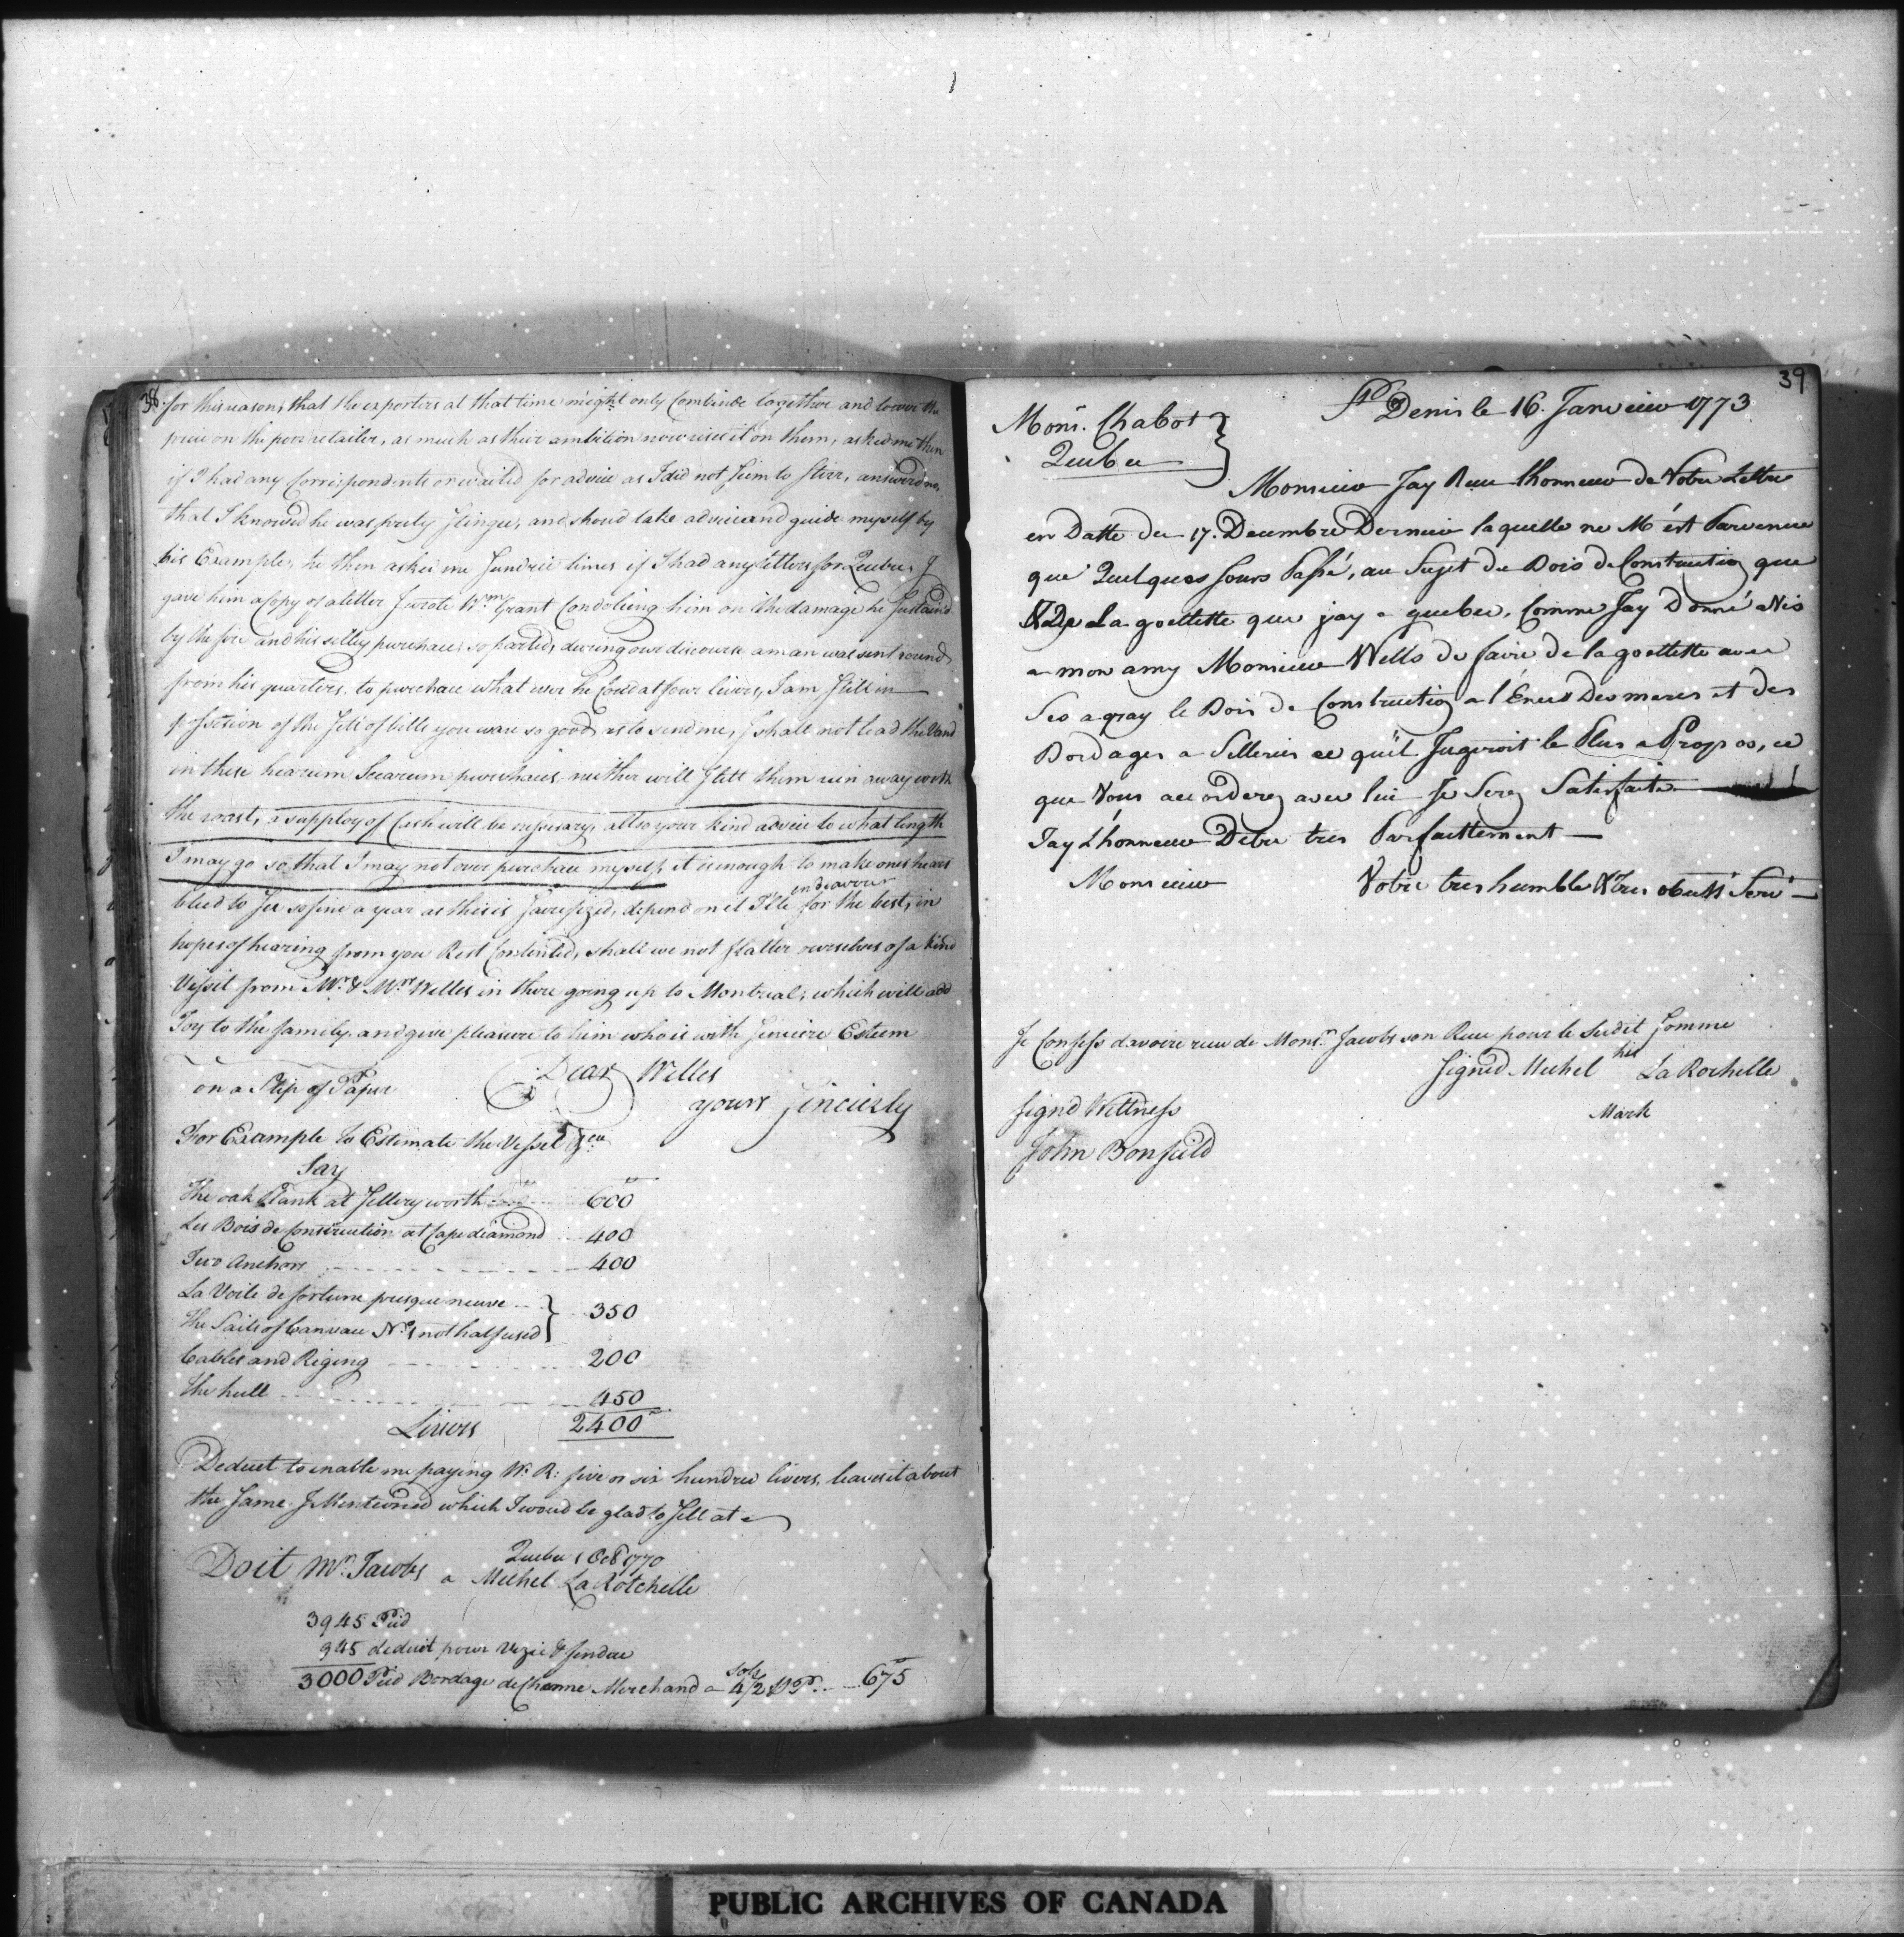 38.
for this reason, that the exporters at that time might only Combinde together and lower the
price on the poor retailer, as much as their ambition now rises it on them, asked me then
if I had any Correspondents or waited for advice as I did not Seem to Stirr, answerd no,
that I knowed he was prety Stingee, and shoud take advice and guide myself by
his Example, he then asked me Sundrie times if I had any letters for Quebec, I
gave him a Copy of a letter I wrote Wm. Grant Condoleing him on the damage he Sustain'd
by the fire and his silley purchace, so parted, dureing our discourse a man was sent round
from his quarters, to purchace what ever he Coud at four livers, I am Still in
possession of the Sett of bills you ware so good as to send me, I shall not lead the Vand
in these hearum Scearum purchaces neither will I lett them run away with
the roast, a supploy of Cash will be nessesary, allso your kind advice to what length
I may go so that I may not over purchace myself, it is enough to make ones heart
bleed to See so fine a year as this is Sacrefized, depend on it I'le endeavour for the best, in
hopes of hearing from you Rest Contented, shall we not flatter ourselves of a kind
Vissit from Mr. & Mrs Welles in there going up to Montreal, which will add
Joy to the family, and give pleasure to him who is with Sincere Esteem
Dear Welles
on a Slip of Paper
yours Sincierly
For Example to Estimate the Vessel &ca.
Say
The oak Plank at Sellery worth 600
Les Bois de Construction at Cape diamond 400
Two Anchors 400
La Voile de fortune presque neuve
The Sails of Canvau No. 1 not half used } 350
Cables and Riging 200
the hull 450
Livers 2400
Deduct to enable me paying W. R: five or six hundred livers, leaves it about
the Same I Mentioned which I woud be glad to Sell at
Quebec 1 Oct 1770
Doit Mr. Jacobs a Michel La Rotchelle
3945 Pied
945 deduit pour Vezie & fendue
3000 Pied Bordage de Chenne Merchand a 4/2 sols P. 675
39
St Denis le 16. Janvier 1773
Mons. Chabot }
Quebec
Monsieur Jay Reue lhonneur de Votre Lettre
en Datte du 17. Decembre Dernier laquelle ne M'ést Parvenue
que Quelques Jours Passé, au Sujet du Bois de Construction que
& De La goellette que jay a quebec, Comme Jay Donné aVis
a mon amy Monsieur Wells de faire de la goellette avec
Ses agray le Bois de Construction a l'Ence Des meres et des
Bordages a Selleries ce qu'il Jugeroit le Plus a Propos, ce
que Vous accorderez avec lui Je Serez Satisfaite
Jay L'honneur Detre tres Parfaittement
Monsieur
Votre tres humble & Tres obeiss Serv
Je Confess d'avoire reue de Monsr. Jacobs son Reue pour le Sudit Somme
Signed Michel his La Rochelle
Mark
Signd Wittness
John Bonfeild
PUBLIC ARCHIVES OF CANADA